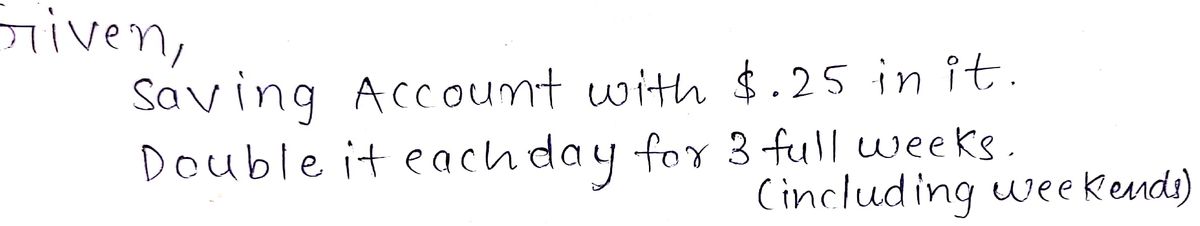 Given,
Saving Account with $.25 in it.
Double it each day for 3 full weeks.
(including weekends)